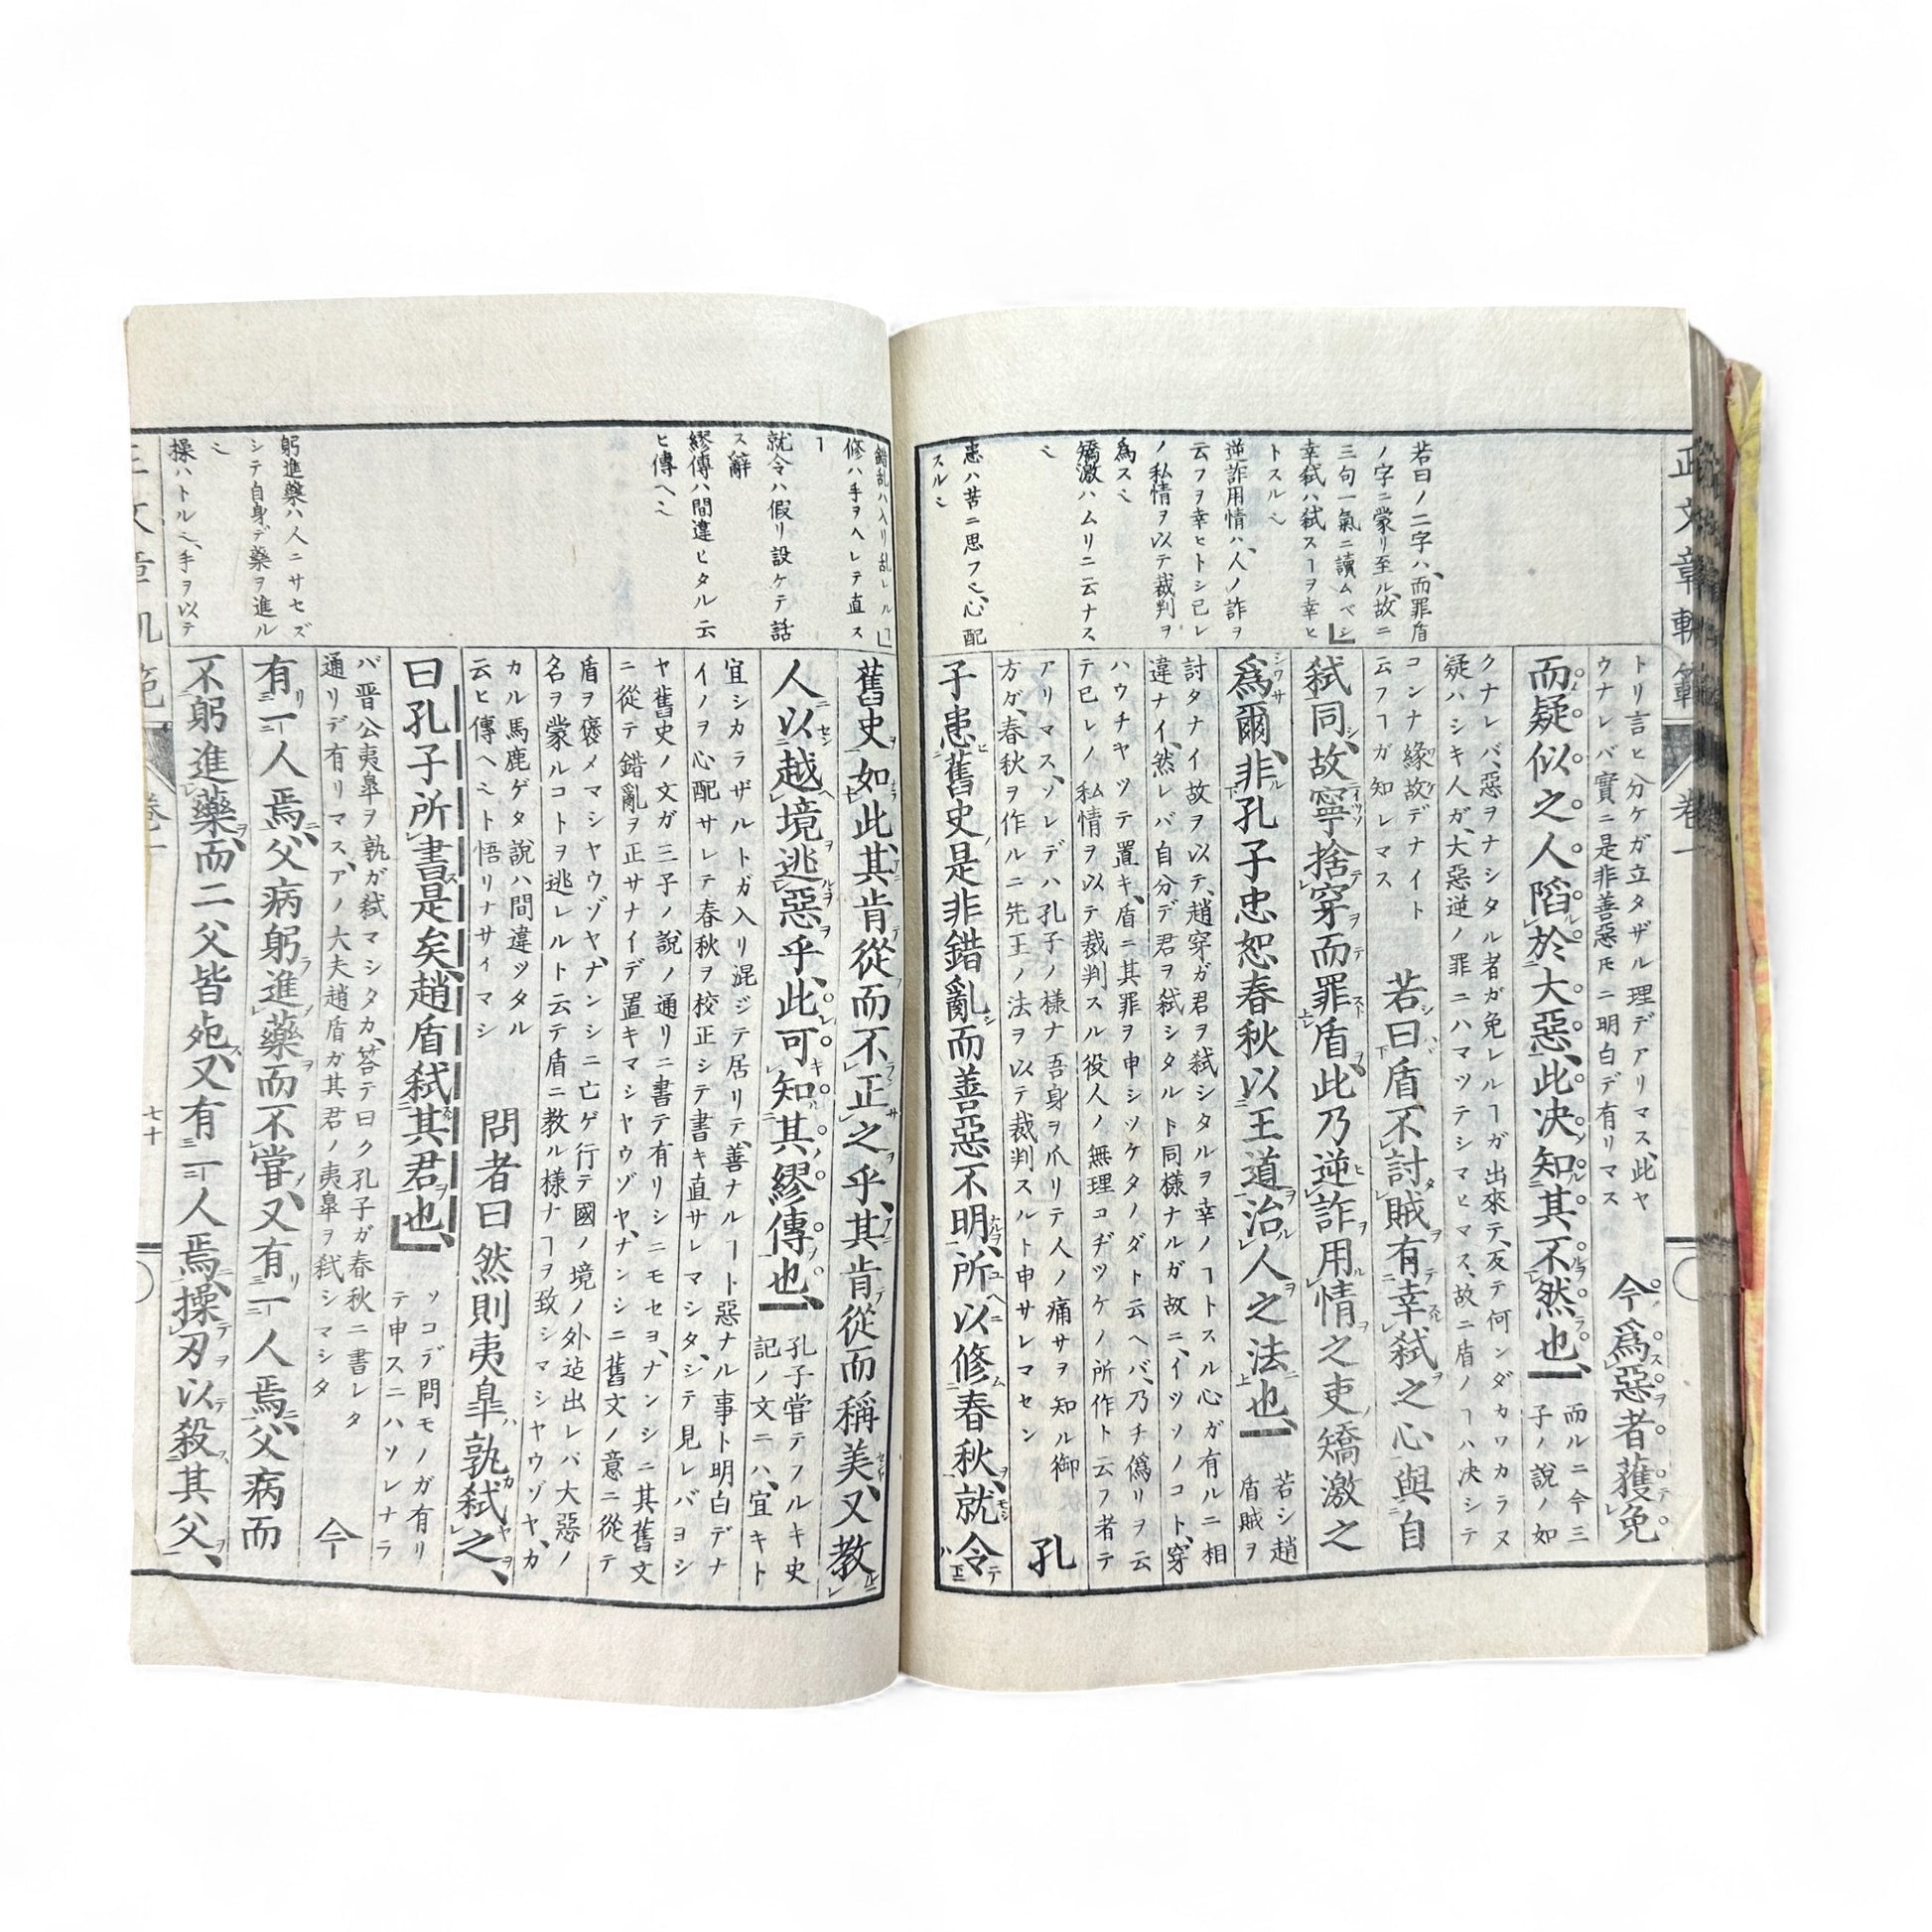 正文章軌範
卷一
若曰ノ二字ハ、而罪盾
ノ字ニ蒙リ至ル、故ニ
三句一氣ニ讀ムベシ
幸弑ハ弑スヿヲ幸ヒ
トスル〻
逆詐用情ハ、人ノ詐ヲ
云フヲ幸ヒトシ己レ
ノ私情ヲ以テ裁判ヲ
爲ス〻
矯激ハムリニ云ナス
〻
患ハ苦ニ思フ〻、心配
スル〻
トリ言ヒ分ケガ立タザル理デアリマス、此ヤ
ウナレバ實ニ是非善惡𪜈ニ明白デ有リマス
今爲惡者獲免
而疑似之人陷於大惡、此决知其不然也、
而ルニ今三
子ノ說ノ如
クナレバ、惡ヲナシタル者ガ免レルヿガ出來テ、反テ何ンダカワカラヌ
疑ハシキ人ガ、大惡逆ノ罪ニハマツテシマヒマス、故ニ盾ノヿハ决シテ
コンナ緣故デナイト
云フヿガ知レマス
若曰盾不討賊有幸弑之心與自
弑同、故寧捨穿而罪盾、此乃逆詐用情之吏矯激之
爲爾、非孔子忠恕春秋以王道治人之法也、
若シ趙
盾賊ヲ
討タナイ故ヲ以テ、趙穿ガ君ヲ弑シタルヲ幸ノヿトスル心ガ有ルニ相
違ナイ、然レバ自分デ君ヲ弑シタルト同樣ナルガ故ニ、イツソノコト、穿
ハウチヤツテ置キ、盾ニ其罪ヲ申シツケタノダト云ヘバ、乃チ僞リヲ云
テ已レノ私情ヲ以テ裁判スル役人ノ無理コヂツケノ所作ト云フ者テ
アリマス、ソレデハ孔子ノ樣ナ吾身ヲ爪リテ人ノ痛サヲ知ル御
方ガ、春秋ヲ作ルニ先王ノ法ヲ以テ裁判スルト申サレマセン
孔
子患舊史是非錯亂而善惡不明、所以修春秋、就令
錯乱ハ入リ乱レルヿ
修ハ手ヲヘレテ直ス
ヿ
就令ハ假リ設ケテ話
ス辭
繆傳ハ間違ヒタル云
ヒ傳ヘ〻
躬進藥ハ人ニサセズ
シテ自身デ藥ヲ進ル
〻
操ハトル〻、手ヲ以テ
舊史如此、其肯從而不正之乎、其肯從而稱美、又敎
人以越境逃惡乎、此可知其繆傳也、
孔子嘗テフルキ史
記ノ文ニハ、宜キト
宜シカラザルトガ入リ混ジテ居リテ、善ナルヿト惡ナル事ト明白デナ
イノヲ心配サレテ春秋ヲ校正シテ書キ直サレマシタ、シテ見レバヨシ
ヤ舊史ノ文ガ三子ノ說ノ通リニ書テ有リシニモセヨ、ナンシニ其舊文
ニ從テ錯亂ヲ正サナイデ置キマシヤウゾヤ、ナンシニ舊文ノ意ニ從テ
盾ヲ褒メマシヤウゾヤ、ナンシニ亡ゲ行テ國ノ境ノ外迯出レバ大惡ノ
名ヲ蒙ルコトヲ逃レルト云テ盾ニ敎ル樣ナヿヲ致シマシヤウゾヤ、カ
カル馬鹿ゲタ說ハ間違ツタル
云ヒ傳ヘ〻ト悟リナサイマシ
問者曰然則夷皐孰弑之、
曰孔子所書是矣、趙盾弑其君也、
ソコデ問モノガ有リ
テ申スニハソレナラ
バ晉公夷皐ヲ孰ガ弑マシタカ、答テ曰ク孔子ガ春秋ニ書レタ
通リデ有リマス、アノ大夫趙盾ガ其君ノ夷皐ヲ弑シマシタ
今
有一人焉、父病躬進藥而不嘗、又有一人焉、父病而
不躬進藥、而二父皆死、又有一人焉、操刃以殺其父、
卷一
七十